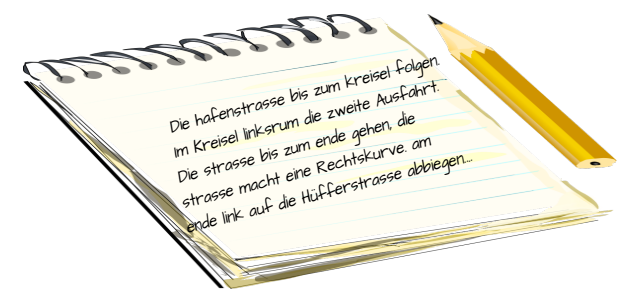 Die hafenstrasse bis zum kreisel folgen.
Im Kreisel linksrum die zweite Ausfahrt.
Die strasse bis zum ende gehen, die
strasse macht eine Rechtskurve. am
ende link auf die Hüfferstrasse abbiegen...